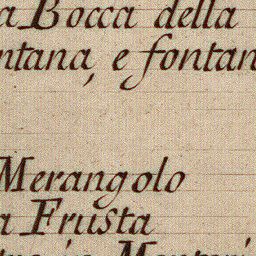 a Bocca della
ntana, e fontan
Merangolo
a Frusta